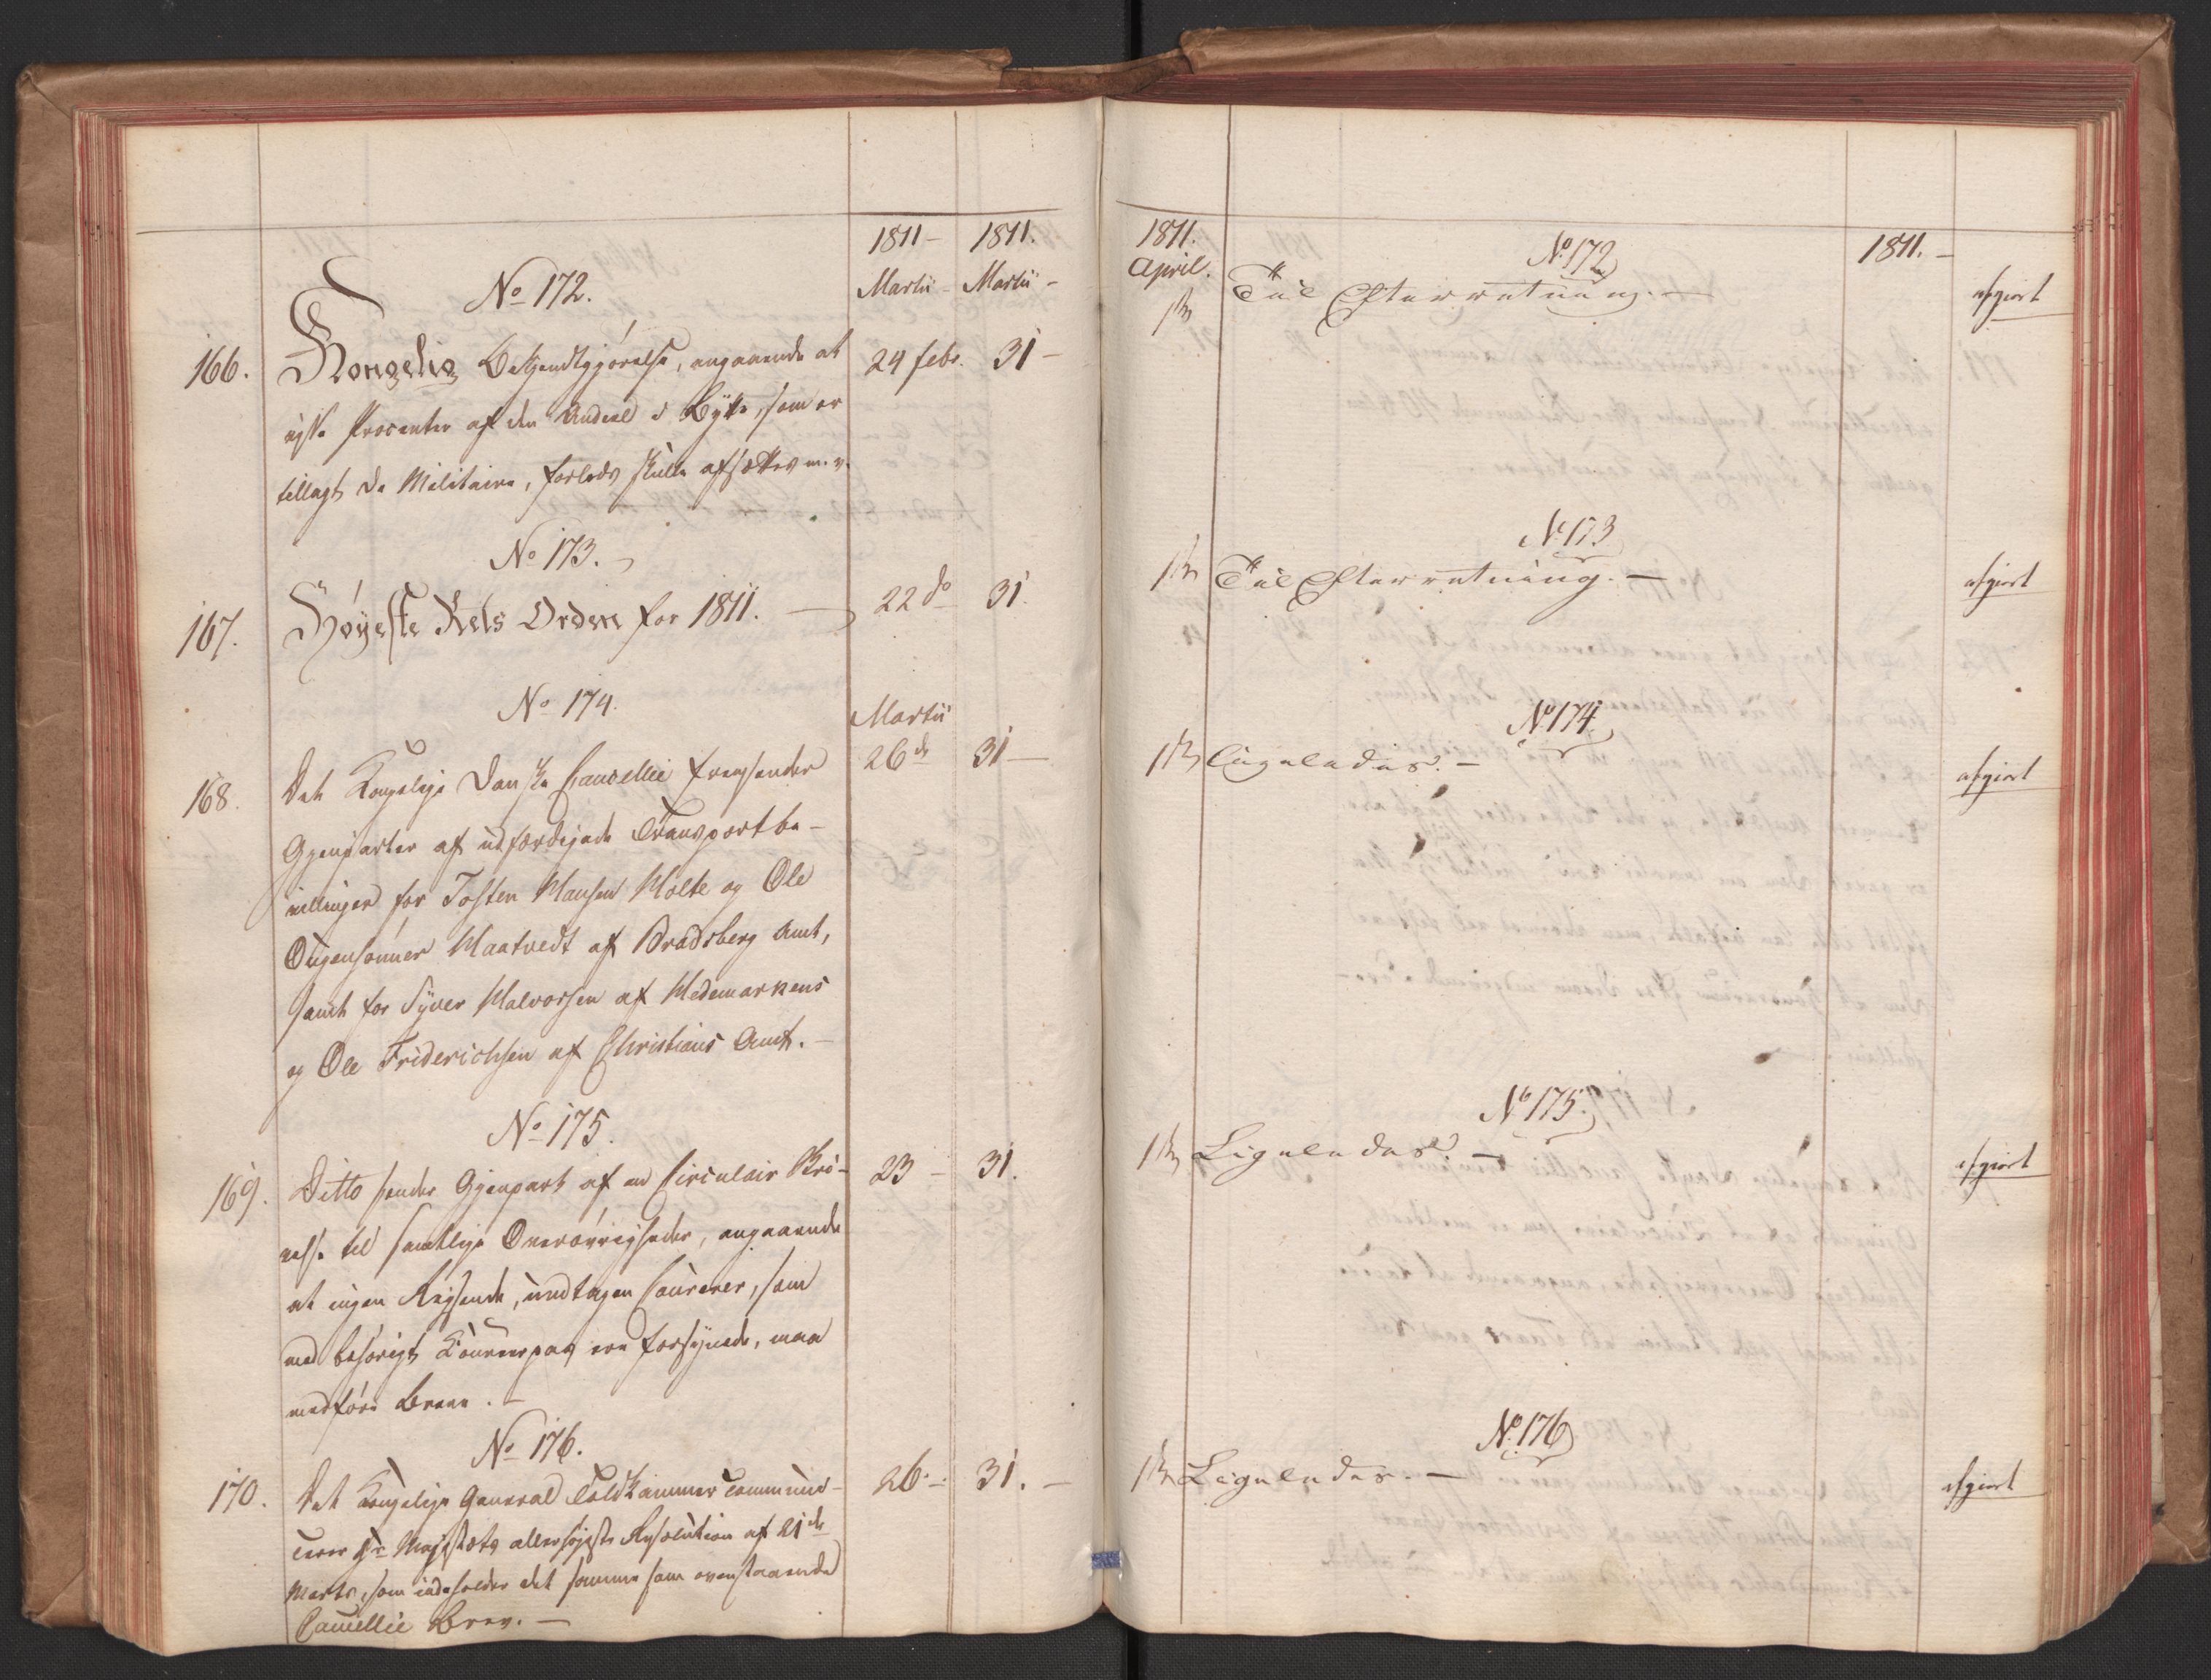 1811 – 1811.
Martii – Martii –
No 172.
166. Kongelig Bekjendtgjørelse, angaaende at 24 febr. 31 –
visse Procenter af den Andeel i Bytte, som er
tillagt de Militaire, forlods skulle afsættes m. v.
No 173.
167. Høyeste Rets Orden for 1811. — 22 do 31.
No 174.
Martii
168. Det Kongelige Danske Cancellie fremsender 26de 31 —
Gjenparter af udfærdigede Transportbe-
villinger for Tosten Hansen Holte og Ole
Eugensønner Haatvedt af Bradsberg Amt,
samt for Syver Halvorsen af Hedemarkens
og Ole Friderichsen af Christians Amt. –
No 175.
169. Ditto sender Gjenpart af en Circulair Skri- 23 – 31.
velse til samtlige Øverøvrigheder, angaaende
at ingen Reysende, undtagen Courerer, som
med behørigt Courerpas ere forsynede, maa
medføre Breve. –
No 176.
170. Det Kongelige General Toldkammer communi- 26 – 31. –
cerer Hs Majestæts allerhøjeste Resolution af 21de
Marts, som indeholder det samme som ovenstaaende
Cancellie Brev. —
1811.
April.
No 172 1811. –
1ste Til Efterretning. — afgiort
No 173
1ste Til Efterretning. — afgiort
No 174.
1ste Ligeledes. – afgiort
No 175.
1ste Ligeledes. – afgiort
No 176
1ste Ligeledes. — afgiort